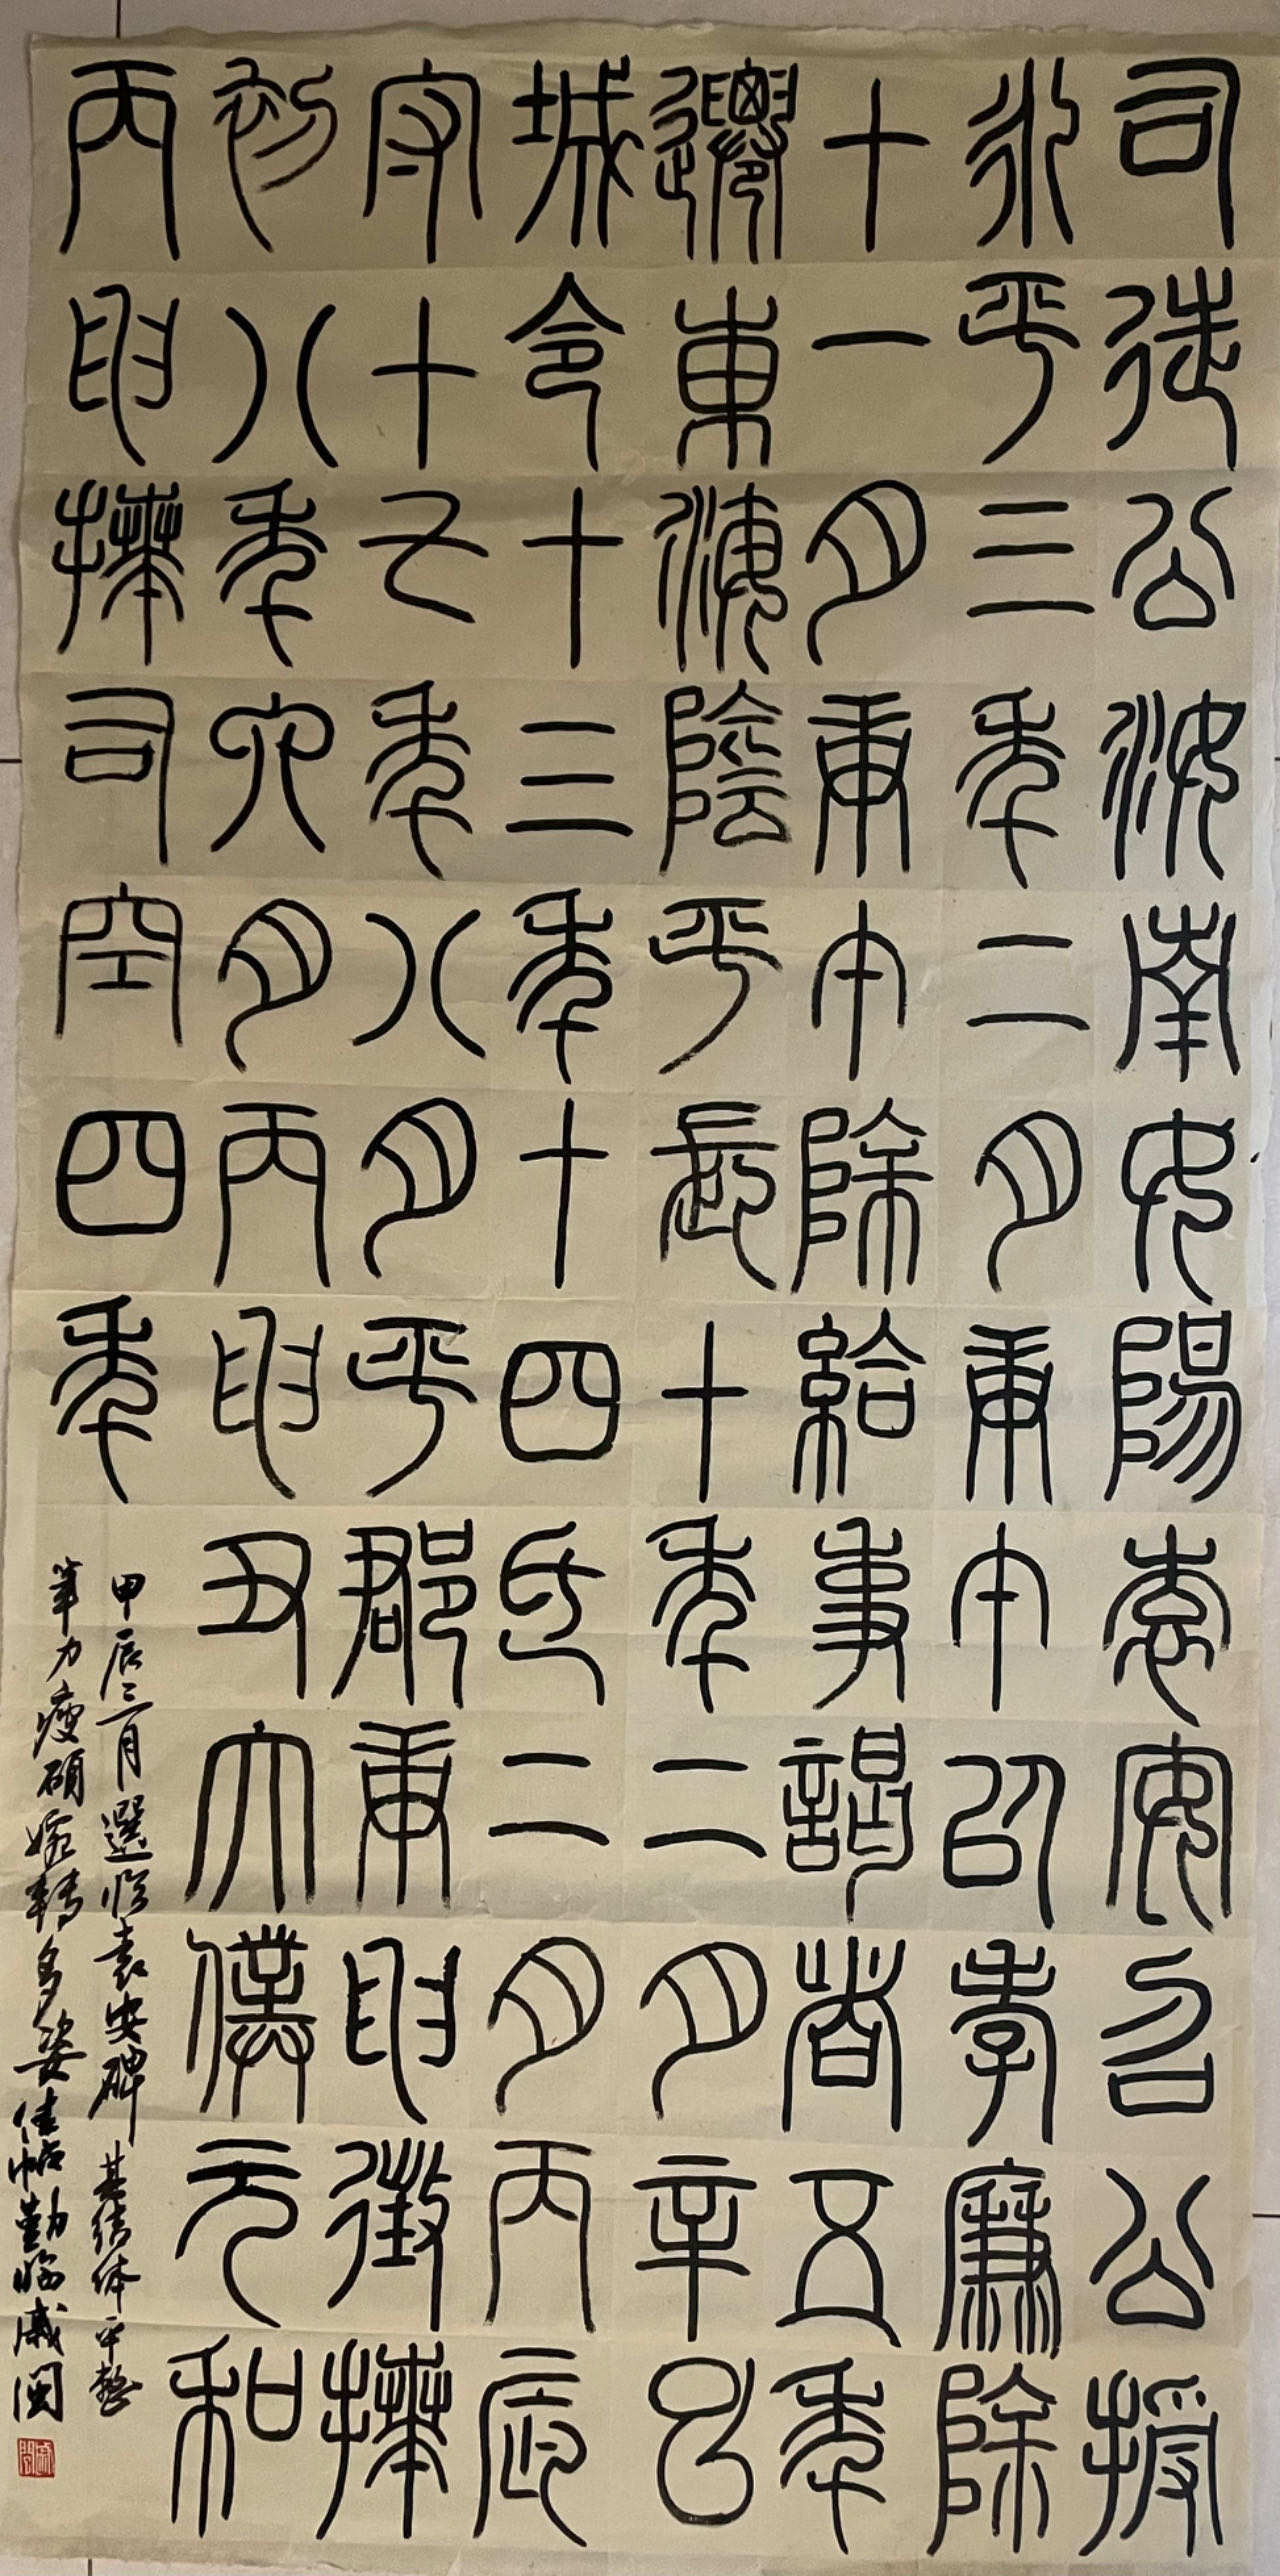 司徒公汝南女陽袁安召公授
永平三年二月庚午以孝廉除
十一月庚午除給事謁者五年
遷東海陰平長十年二月辛巳
城令十三年十四二月丙辰
守十七年八月平郡庚申徵拜
初八年六月丙申丑大僕元和
丙申拜司空四年
甲辰三月選臨袁安碑其結体平整
筆力瘦硕婉轉多姿佳帖勤臨戚闽